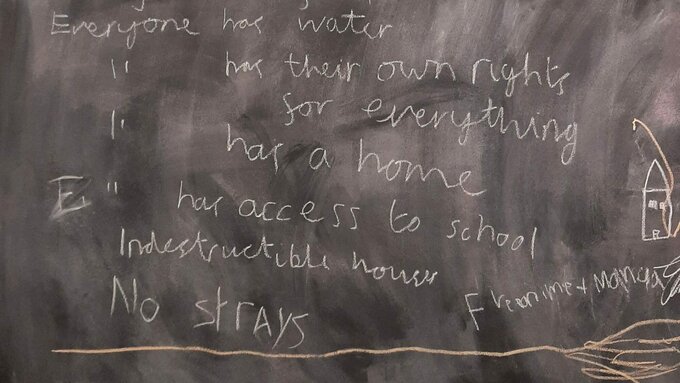 Everyone has water
" has their own rights
for everything
" has a home
E " has access to school
Indestructible houses
Free anime + Manga
No strays